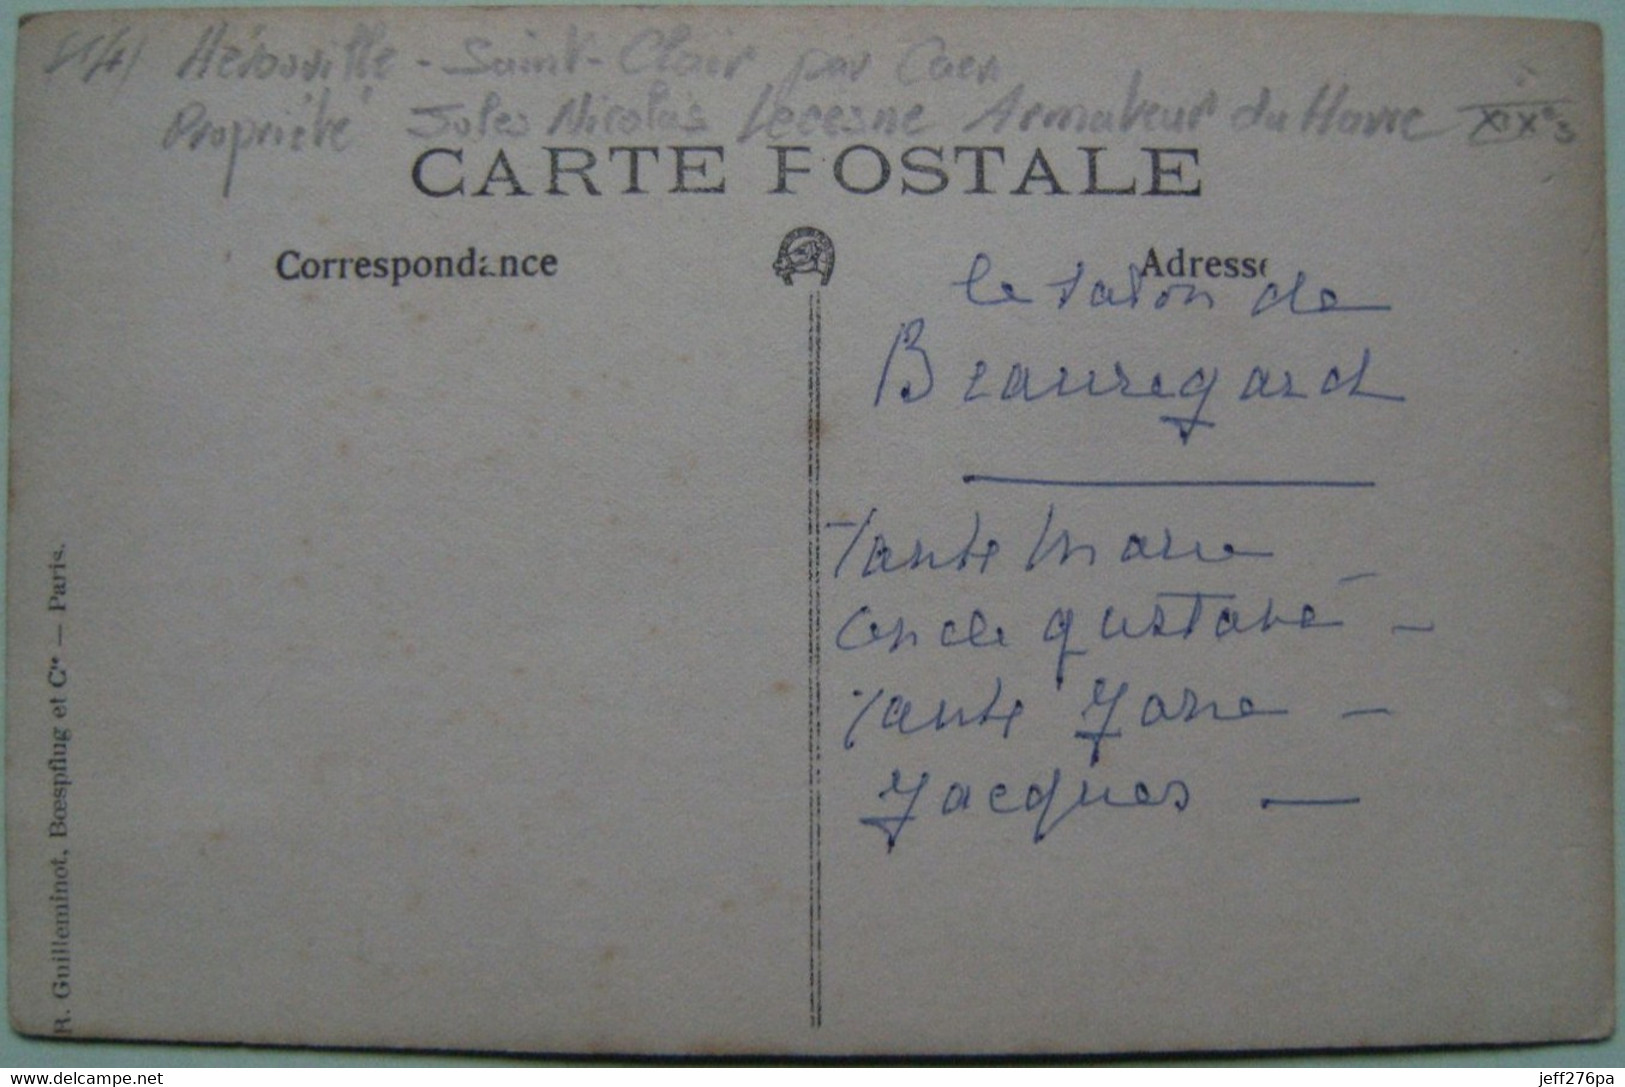 (14) Hérouville - Saint-Clair par Caen
Propriété Jules Nicolas Lecesne Armateur du Havre XIXe s
CARTE POSTALE
Correspondance
Adresse
le salon de
Beauregard
Tante Marie
Oncle Gustave -
Tante Jane -
Jacques -
R. Guilleminot, Bœspflug et Cie — Paris.
www.delcampe.net
jeff276pa